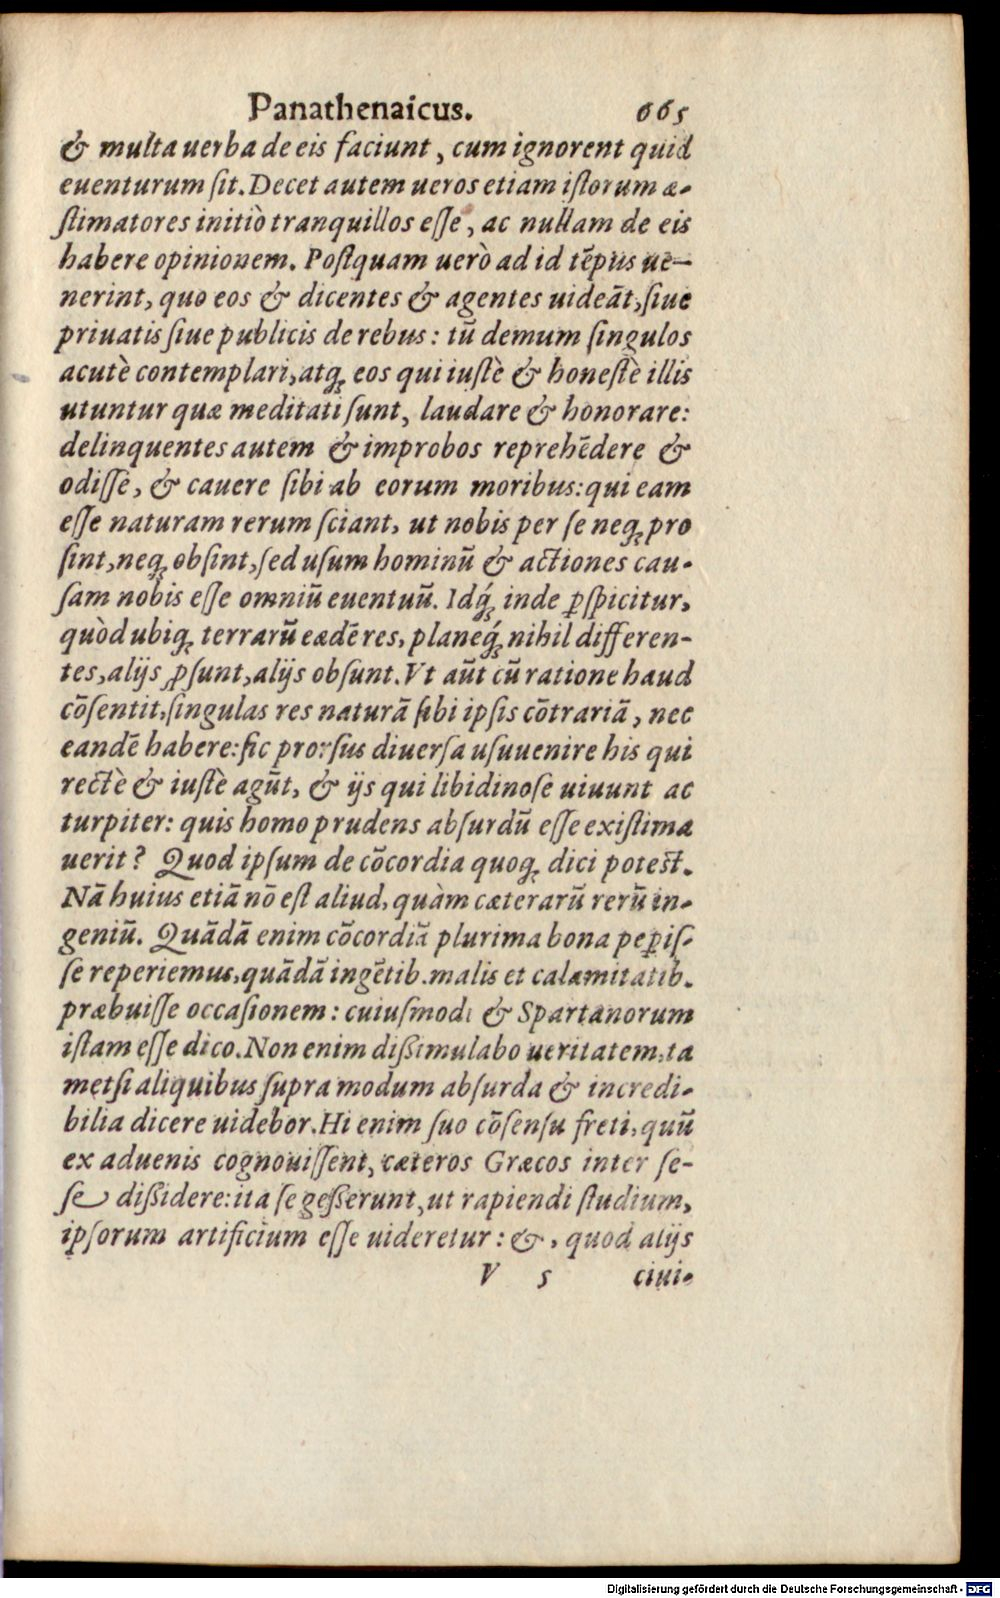 Panathenaicus. 665
& multa uerba de eis faciunt, cum ignorent quid
euenturum ſit. Decet autem ueros etiam iſtorum æ-
ſtimatores initiò tranquillos eſſe, ac nullam de eis
habere opinionem. Poſtquam uerò ad id tẽpus ue-
nerint, quo eos & dicentes & agentes uideãt, ſiue
priuatis ſiue publicis de rebus: tũ demum ſingulos
acutè contemplari, atq; eos qui iuſtè & honeſtè illis
utuntur quæ meditati ſunt, laudare & honorare:
delinquentes autem & improbos reprehẽdere &
odiſſe, & cauere ſibi ab eorum moribus: qui eam
eſſe naturam rerum ſciant, ut nobis per ſe neq; pro
ſint, neq; obſint, ſed uſum hominũ & actiones cau-
ſam nobis eſſe omniũ euentuũ. Idq́; inde ꝑſpicitur,
quòd ubiq; terrarũ eædẽ res, planeq́; nihil differen-
tes, alijs ꝓſunt, alijs obſunt. Vt aũt cũ ratione haud
cõſentit, ſingulas res naturã ſibi ipſis cõtrariã, nec
eandẽ habere: ſic prorſus diuerſa uſuuenire his qui
rectè & iuſtè agũt, & ijs qui libidinoſe uiuunt ac
turpiter: quis homo prudens abſurdũ eſſe exiſtima
uerit? Quod ipſum de cõcordia quoq; dici poteſt.
Nã huius etiã nõ eſt aliud, quàm cæterarũ rerũ in-
geniũ. Quãdã enim cõcordiã plurima bona peꝑiſ-
ſe reperiemus, quãdã ingẽtib. malis et calamitatib.
præbuiſſe occaſionem: cuiuſmodi & Spartanorum
iſtam eſſe dico. Non enim dißimulabo ueritatem, ta
metſi aliquibus ſupra modum abſurda & incredi-
bilia dicere uidebor. Hi enim ſuo cõſenſu freti, quũ
ex aduenis cognouiſſent, cæteros Græcos inter ſe-
ſe dißidere: ita ſe geßerunt, ut rapiendi ſtudium,
ipſorum artificium eſſe uideretur: &, quod alijs
V 5 ciui-
Digitalisierung gefördert durch die Deutsche Forschungsgemeinschaft - DFG